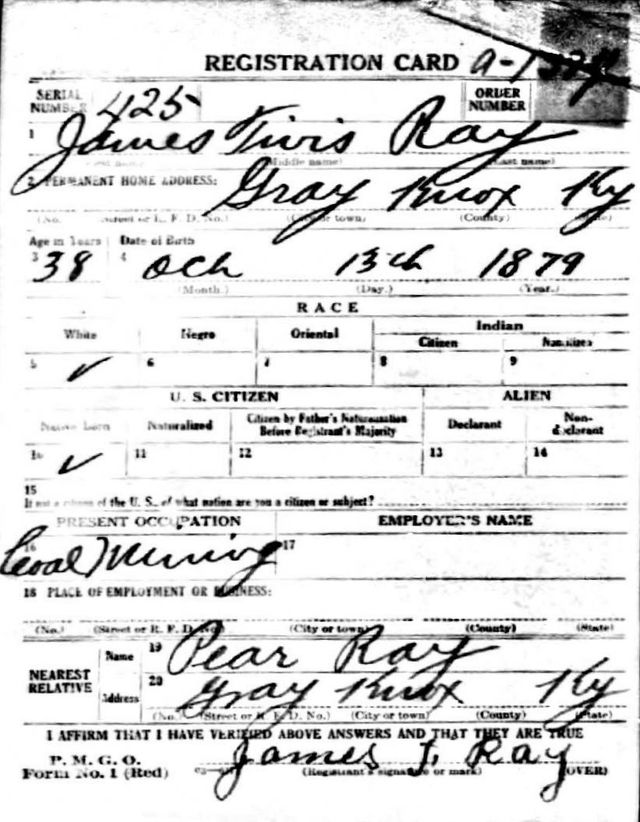 REGISTRATION CARD
SERIAL NUMBER 425 ORDER NUMBER
1 James Tivis Ray
(Middle name) (Last name)
2 PERMANENT HOME ADDRESS: Gray Knox Ky
(No. Street or R. F. D. No.) (City or town) (County) (State)
Age in Years Date of Birth
3 38 4 Och 13th 1879
(Month.) (Day.) (Year.)
RACE
White Negro Oriental Indian
Citizen
5 ✓ 6 7 8 9
U. S. CITIZEN ALIEN
Native Born Naturalized Citizen by Father's Naturalization Before Registrant's Majority Declarant Non-declarant
10 ✓ 11 12 13 14
15
If not a citizen of the U. S., of what nation are you a citizen or subject?
PRESENT OCCUPATION EMPLOYER'S NAME
16 Coal Mining 17
18 PLACE OF EMPLOYMENT OR BUSINESS:
(No.) (Street or R. F. D. No.) (City or town) (County) (State)
NEAREST RELATIVE Name 19 Pear Ray
Address 20 Gray Knox Ky
(No.) (Street or R. F. D. No.) (City or town) (County) (State)
I AFFIRM THAT I HAVE VERIFIED ABOVE ANSWERS AND THAT THEY ARE TRUE
P. M. G. O.
Form No. 1 (Red) James T. Ray
(Registrant's signature or mark) (OVER)